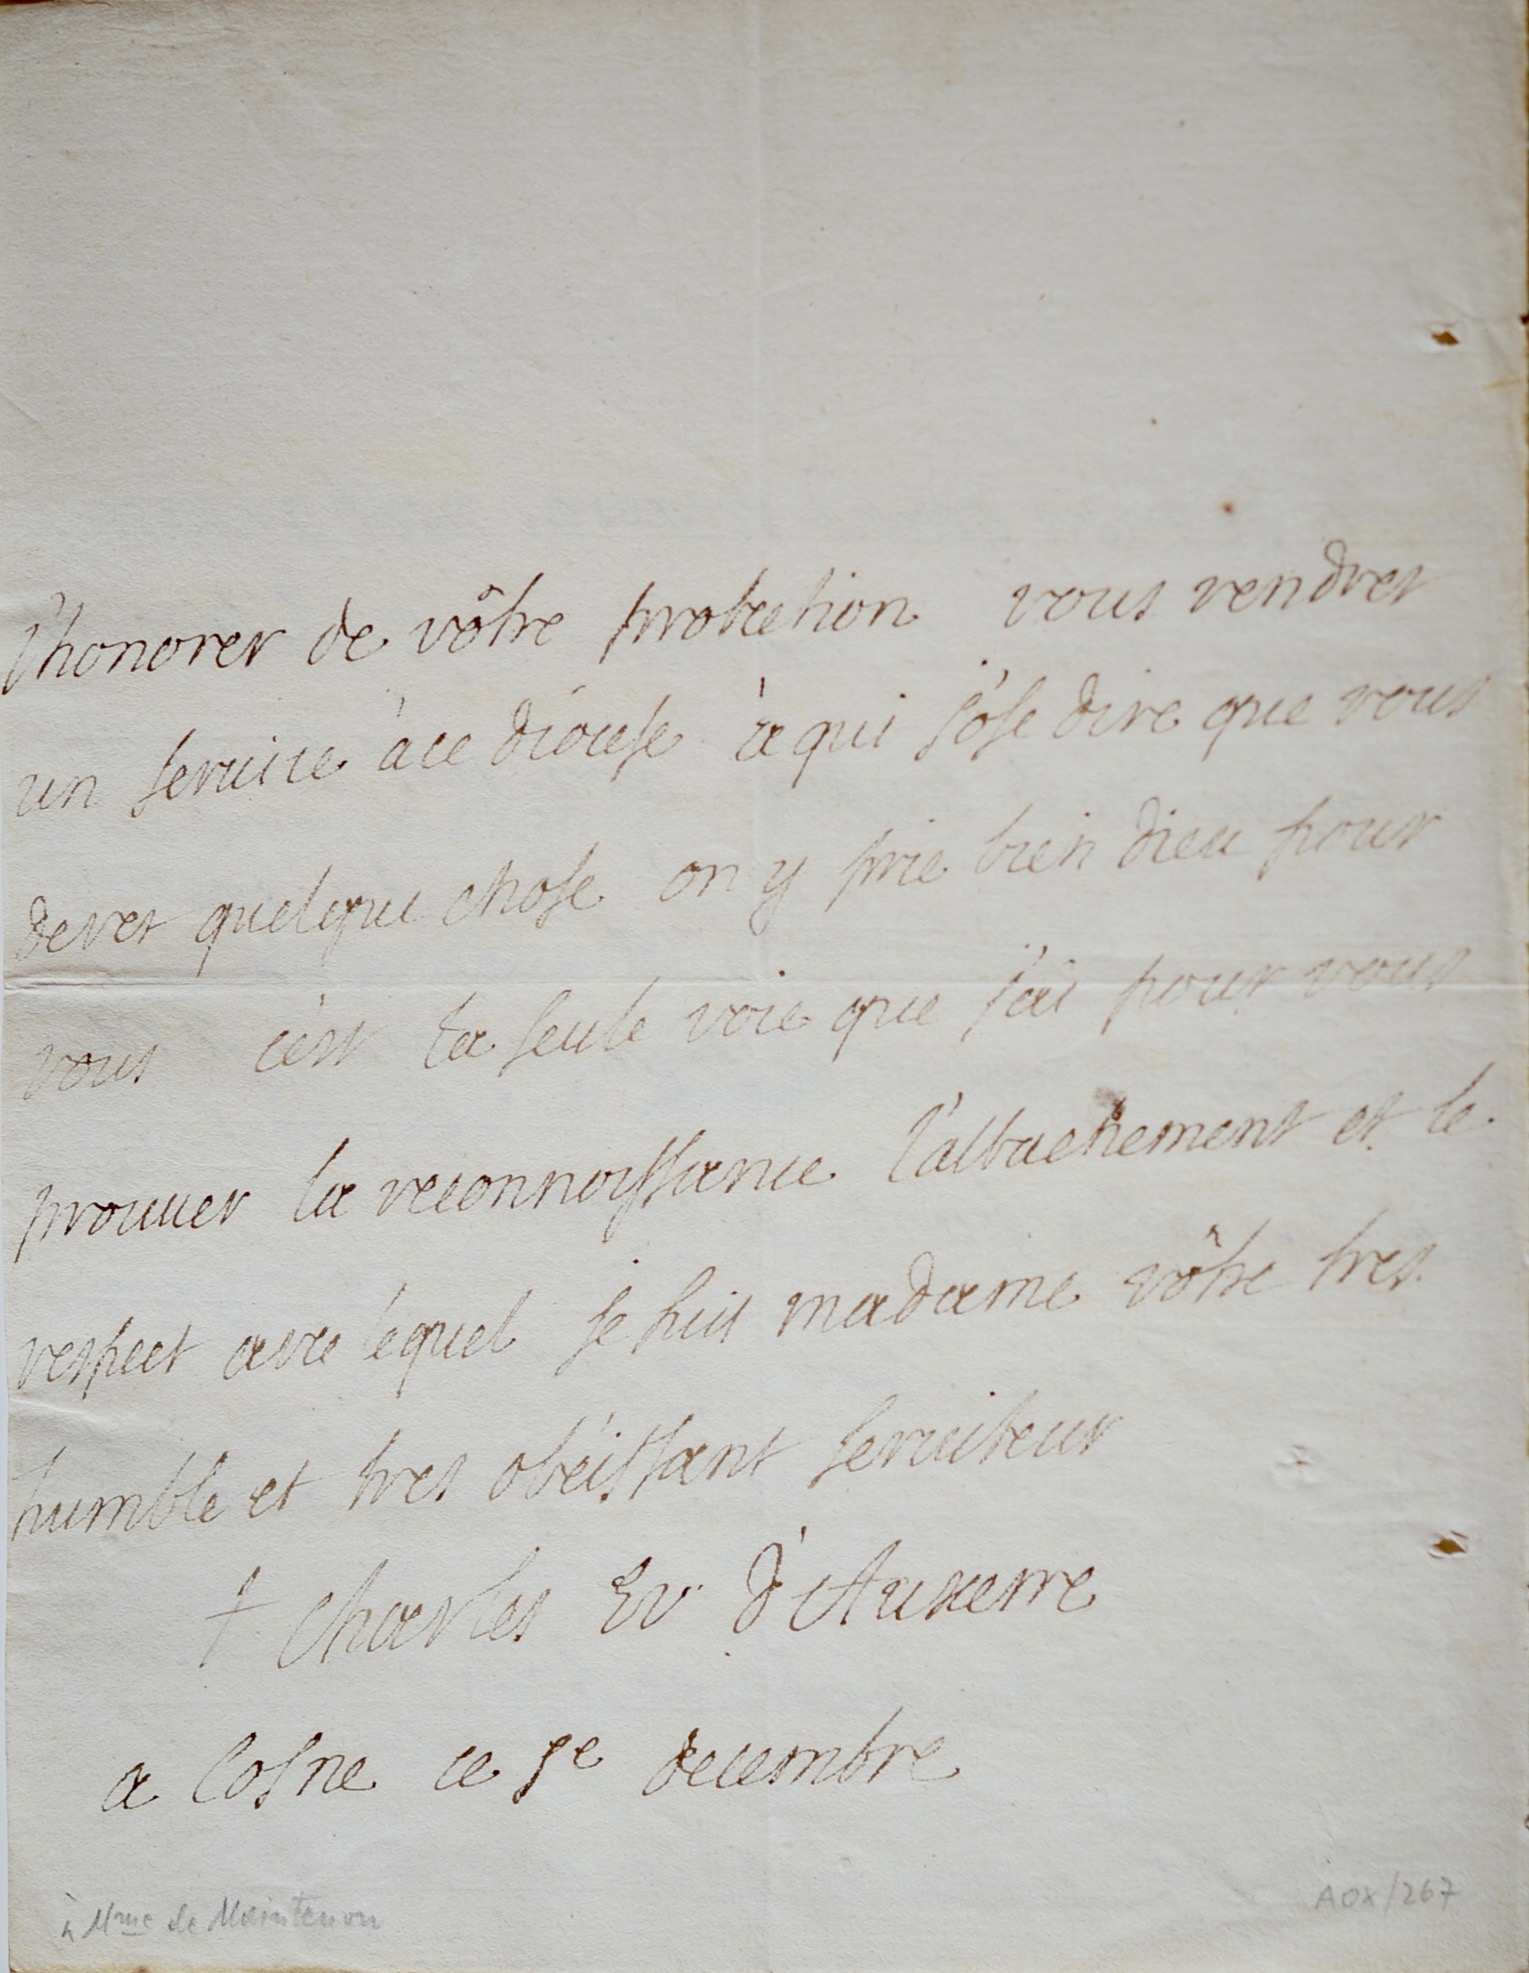 l'honorer de vôtre protection vous rendres
un seruice a ce diocese a qui j'ose dire que vous
deves quelque chose on y prie bien dieu pour
vous c'est la seule voie que j'ai pour vous
prouuer la reconnoissance l'attachement et le
respect avec lequel je suis madame vôtre tres
humble et tres obéissant seruiteur
† Charles Ev d'Auxerre
a Cosne ce 5e decembre
à Mme de Maintenon
AOX/267